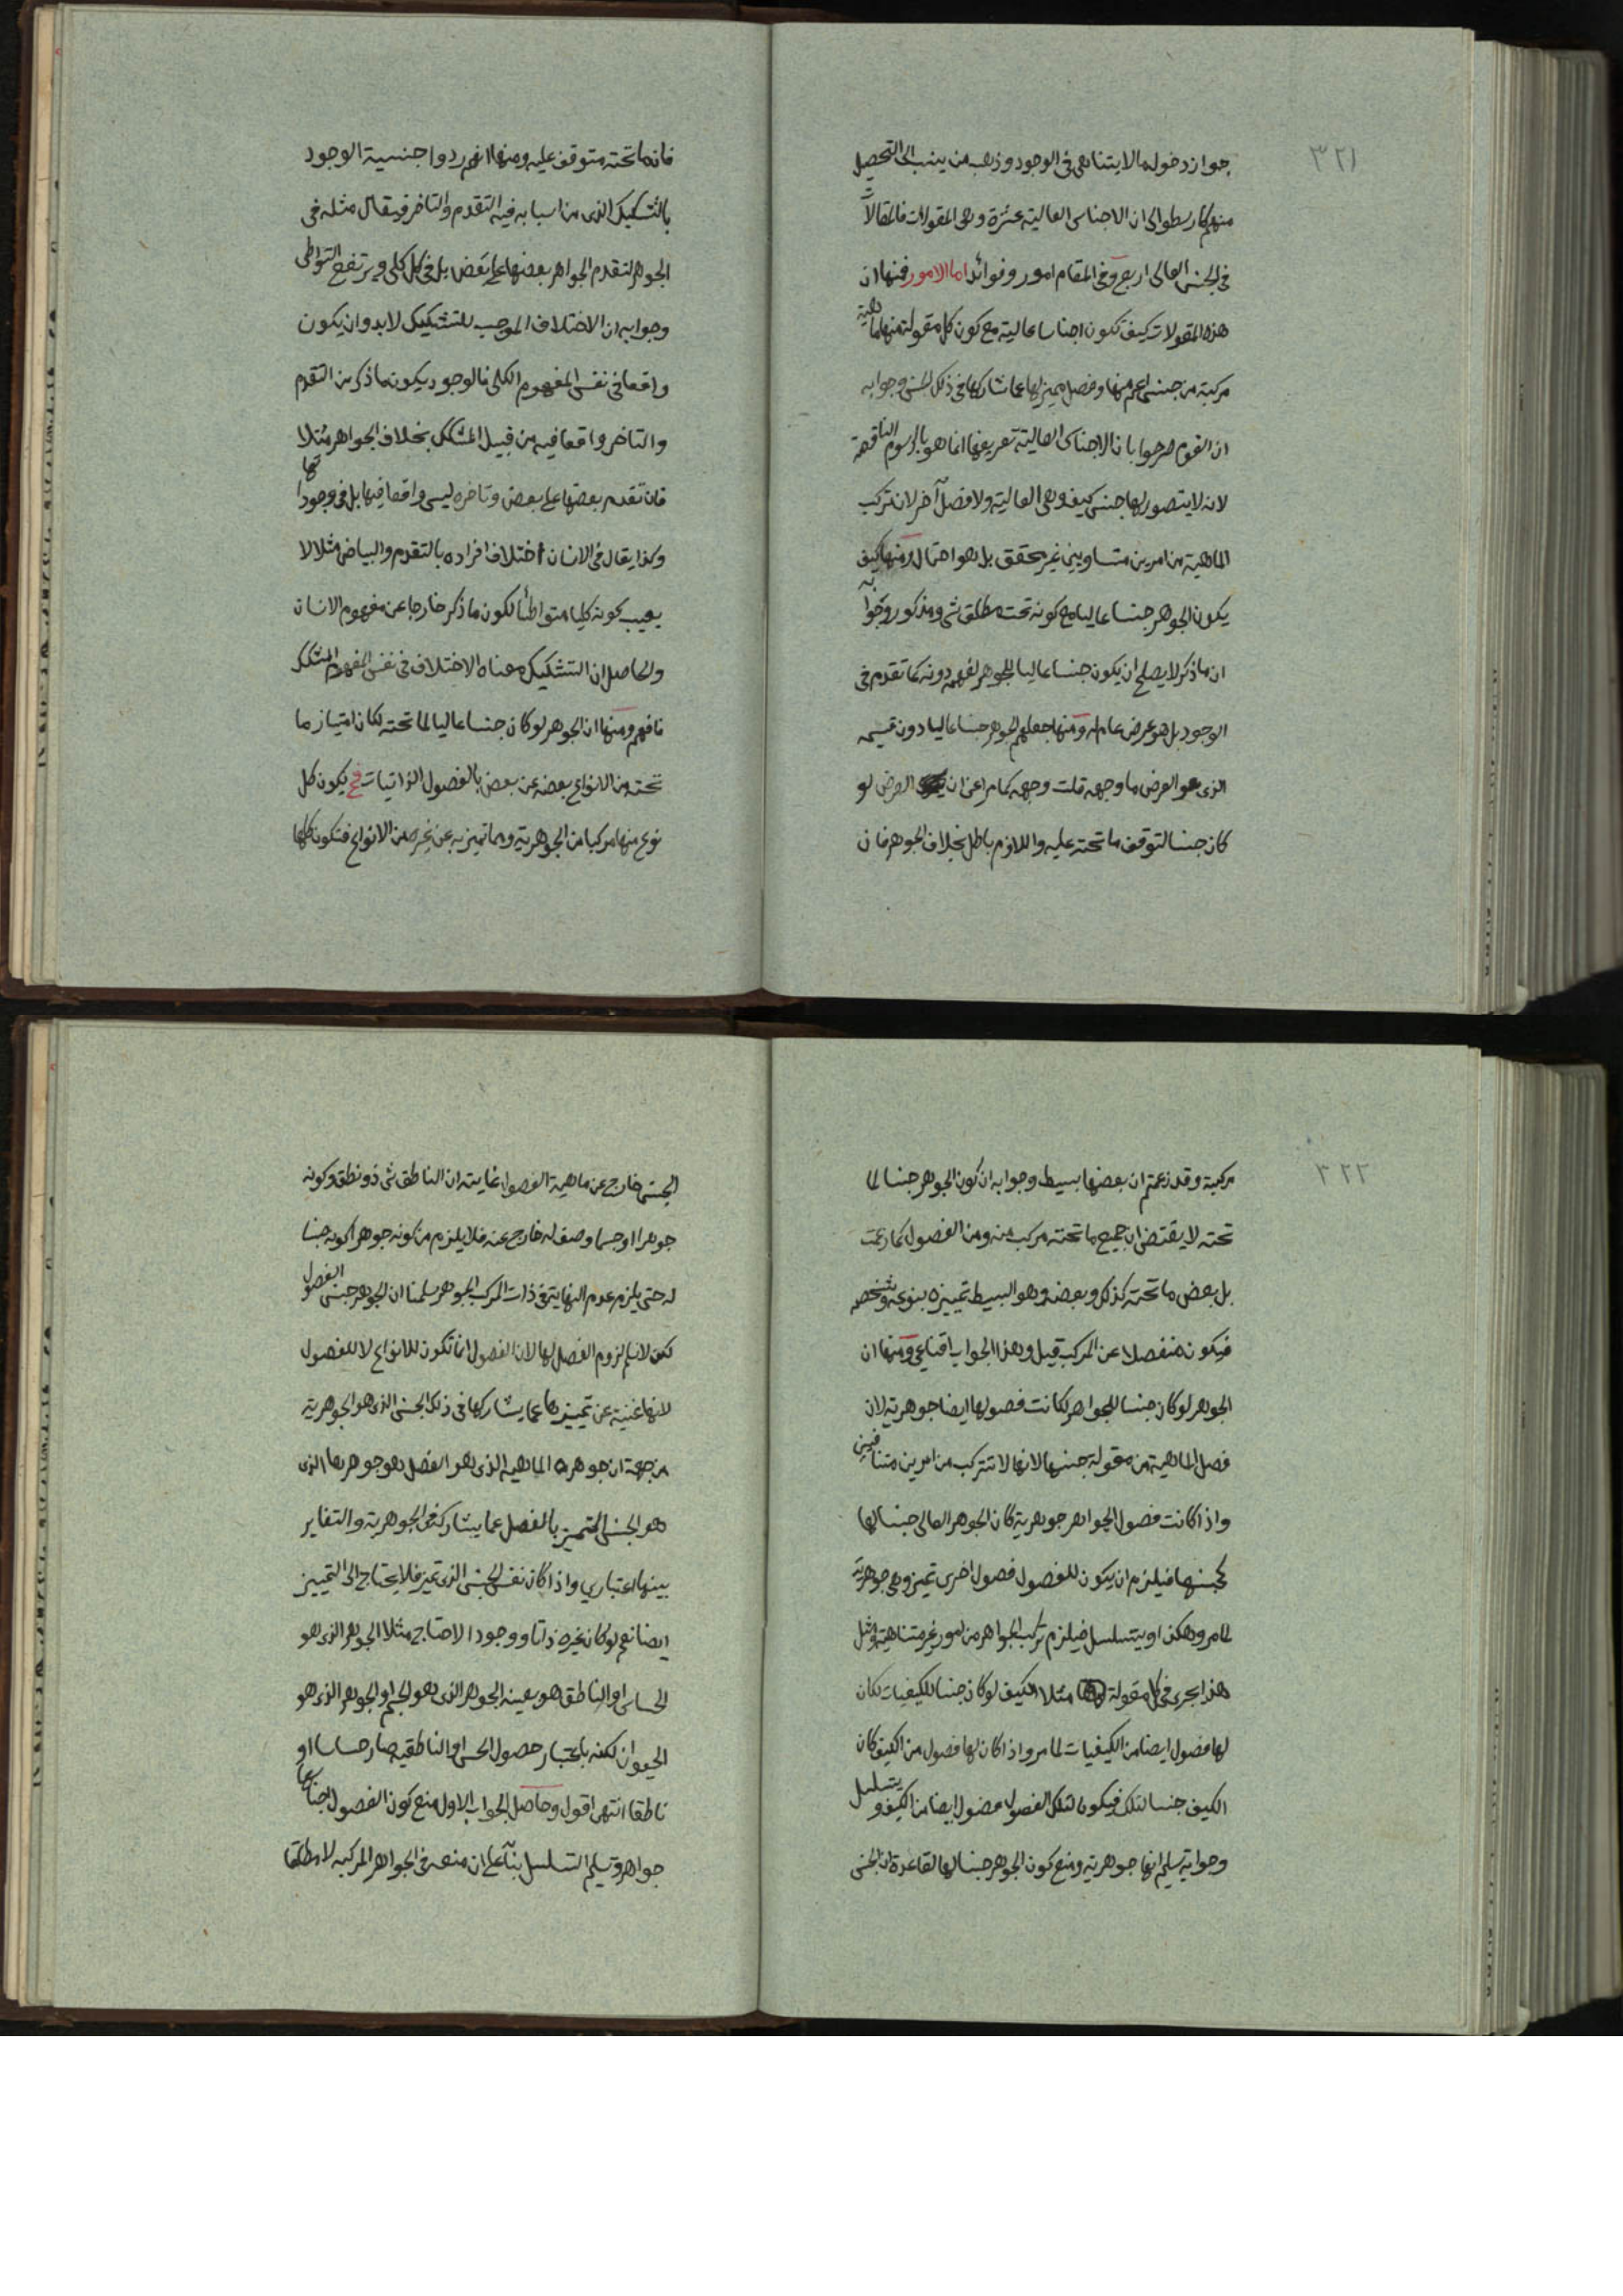 ٣٢١
جواز دخول مالا يتناهى فى الوجود وذهب من ينسب الى التحصيل
منهم كارسطو الى ان الاجناس العالية عشرة وهى المقولات فالمقالات
فى الجنس العالى اربع وفى المقام امور وفوائد اما الامور فمنها ان
هذه المقولات كيف تكون اجناسا عالية مع كون كل مقولة منها ماهية
مركبة من جنس اعم منها وفصل يميزها عما شاركها فى ذلك الجنس وجوابه
ان القوم صرحوا بان الاجناس العالية تعريفها انما هو بالرسوم الناقصة
لانه لا يتصور لها جنس كيف وهى العالية ولا فصل آخر لان تركب
الماهية من امرين متساويين غير محقق بل هو احتمال ومنها كيف
يكون الجوهر جنسا عاليا مع كونه تحت مطلق شى ومذكور وجوابه
ان ما ذكر لا يصلح ان يكون جنسا عاليا للجوهر لفهمه دونه كما تقدم فى
الوجود بل هو عرض عام له ومنها جعلهم الجوهر جنسا عاليا دون قسيمه
الذى هو العرض ما وجهه قلت وجهه كما مر اعنى ان العرض لو
كان جنسا لتوقف ما تحته عليه واللازم باطل بخلاف الجوهر فان
فانه ما تحته متوقف عليه ومنها انهم ردوا جنسية الوجود
بالتشكيك الذى من اسبابه فيه التقدم والتاخر فيقال مثله فى
الجوهر لتقدم الجواهر بعضها على بعض بل فى كل كلى ويرتفع التواطى
وجوابه ان الاختلاف الموجب للتشكيك لابد وان يكون
واقعا فى نفس المفهوم الكلى فالوجود يكون ما ذكر من التقدم
والتاخر واقعا فيه من قبيل المشكك بخلاف الجواهر مثلا
فان تقدم بعضها على بعض وتاخره ليس واقعا فيها بل فى وجوداتها
وكذا يقال فى الانسان اختلاف افراده بالتقدم والبياض مثلا لا
يعيب كونه كليا متواطئا لكون ما ذكر خارجا عن مفهوم الانسان
والحاصل ان التشكيك معناه الاختلاف فى نفس المفهوم المشكك
فافهم ومنها ان الجوهر لو كان جنسا عاليا لما تحته لكان امتياز ما
تحته من الانواع بعضه عن بعض بالفصول الذاتيات فح يكون كل
نوع منها مركبا من الجوهرية ومما تميز به عن غيره من الانواع فتكون كلها
٣٢٢
مركبة وقد زعمتم ان بعضها بسيط وجوابه ان كون الجوهر جنسا لما
تحته لا يقتضى ان جميع ما تحته مركب منه ومن الفصول كما زعمت
بل بعض ما تحته كذلك وبعضه وهو البسيط تمييزه بنوعه وشخصه
فيكون منفصلا عن المركب قيل وهذا الجواب اقناعى ومنها ان
الجوهر لو كان جنسا للجواهر لكانت فصولها ايضا جوهرية لان
فصل الماهية من مقولة جنسها لانها لا تتركب من امرين متنافيين
واذا كانت فصول الجواهر جوهرية كان الجوهر العالى جنسا لها
كجنسها فيلزم ان يكون للفصول فصول اخرى تميز وهى جوهرية
لما مر وهكذا ويتسلسل فيلزم تركب الجواهر من امور غير متناهية ومثل
هذا يجرى فى كل مقولة مثلا الكيف لو كان جنسا للكيفيات لكان
لها فصول ايضا من الكيفيات لما مر واذا كان لها فصول من الكيف كان
الكيف جنسا لتلك فيكون لتلك الفصول فصول ايضا من الكيف ويتسلسل
وجوابه تسليم انها جوهرية ومنع كون الجوهر جنسا لها لقاعدة ان الجنس
الجنس خارج عن ماهية الفصول غايته ان الناطق شى ذو نطق وكونه
جوهرا او جسما وصف له خارج عنه فلا يلزم من كونه جوهرا كونه جنسا
له حتى يلزم عدم النهاية فى ذات المركب الجوهر سلمنا ان الجوهر جنس الفصول
لكن لا نسلم لزوم الفصل لها لان الفصول انما تكون للانواع لا للفصول
لانها غنية عن تمييزها عما يشاركها فى ذلك الجنس الذى هو الجوهرية
من جهة ان جوهر الماهية الذى هو الفصل هو جوهرها الذى
هو الجنس المتميز بالفصل عما يشاركه فى الجوهرية والتغاير
بينها اعتبارى واذا كان نفس الجنس الذى تميز فلا يحتاج الى التمييز
ايضا نعم لو كان غيره ذاتا ووجودا لاحتاج مثلا الجوهر الذى هو
الحساس او الناطق هو بعينه الجوهر الذى هو الجسم او الجوهر الذى هو
الحيوان لكنه باعتبار حصول الحس او الناطقية صار حساسا او
ناطقا انتهى اقول وحاصل الجواب الاول منع كون الفصول اجناسها
جواهر وتسليم التسلسل بناء على ان منعه فى الجواهر المركبة لا مطلقا